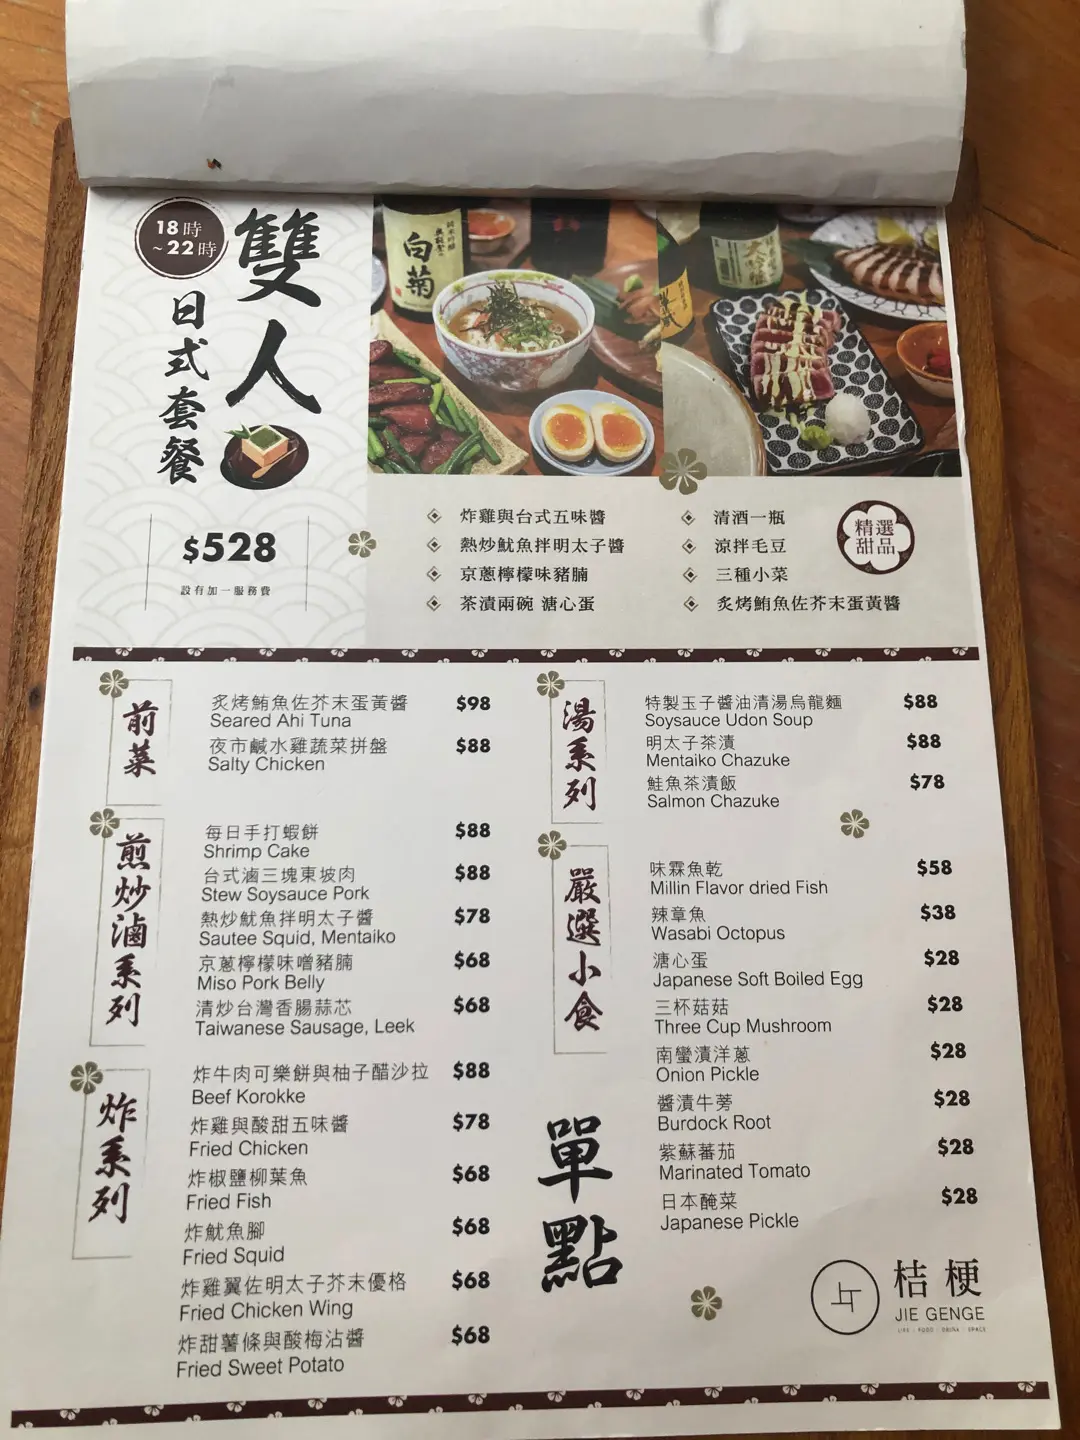 18時
~22時
雙人
日式套餐
$528
設有加一服務費
白菊
炸雞與台式五味醬
熱炒魷魚拌明太子醬
京蔥檸檬味豬腩
茶漬兩碗 溏心蛋
清酒一瓶
涼拌毛豆
三種小菜
炙烤鮪魚佐芥末蛋黃醬
精選
甜品
前菜
炙烤鮪魚佐芥末蛋黃醬 $98
Seared Ahi Tuna
夜市鹹水雞蔬菜拼盤 $88
Salty Chicken
煎炒滷系列
每日手打蝦餅 $88
Shrimp Cake
台式滷三塊東坡肉 $88
Stew Soysauce Pork
熱炒魷魚拌明太子醬 $78
Sautee Squid, Mentaiko
京蔥檸檬味噌豬腩 $68
Miso Pork Belly
清炒台灣香腸蒜芯 $68
Taiwanese Sausage, Leek
炸系列
炸牛肉可樂餅與柚子醋沙拉 $88
Beef Korokke
炸雞與酸甜五味醬 $78
Fried Chicken
炸椒鹽柳葉魚 $68
Fried Fish
炸魷魚腳 $68
Fried Squid
炸雞翼佐明太子芥末優格 $68
Fried Chicken Wing
炸甜薯條與酸梅沾醬 $68
Fried Sweet Potato
湯系列
特製玉子醬油清湯烏龍麵 $88
Soysauce Udon Soup
明太子茶漬 $88
Mentaiko Chazuke
鮭魚茶漬飯 $78
Salmon Chazuke
嚴選小食
味霖魚乾 $58
Millin Flavor dried Fish
辣章魚 $38
Wasabi Octopus
溏心蛋 $28
Japanese Soft Boiled Egg
三杯菇菇 $28
Three Cup Mushroom
南蠻漬洋蔥 $28
Onion Pickle
醬漬牛蒡 $28
Burdock Root
紫蘇蕃茄 $28
Marinated Tomato
日本醃菜 $28
Japanese Pickle
單點
桔梗
JIE GENGE
LIFE · FOOD · DRINK · SPACE